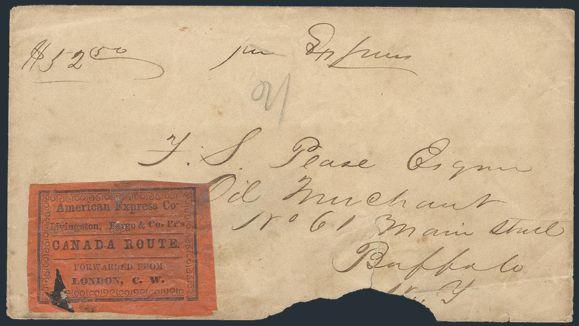 $52.50
per Express
F. S. Pease Esqure
Oil Merchant
No 61 Main Street
Buffalo
N. Y
American Express Co
Livingston, Fargo & Co. Pr's
CANADA ROUTE.
FORWARDED FROM
LONDON, C. W.